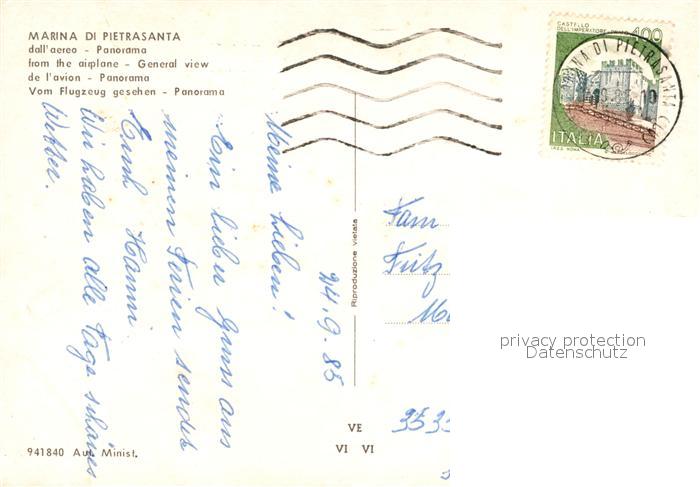 MARINA DI PIETRASANTA
dall'aereo - Panorama
from the airplane - General view
de l'avion - Panorama
Vom Flugzeug gesehen - Panorama
24.9.85
Meine Lieben!
Ein lieber Gruss aus
meinen Ferien sendet
Euch Hanni.
Wir haben alle Tage schönes
Wetter.
Riproduzione vietata
CASTELLO
DELL'IMPERATORE - PRATO
400
ITALIA
MARINA DI PIETRASANTA
10
Fam
Fritz
353
privacy protection
Datenschutz
VE
VI VI
941840 Aut. Minist.